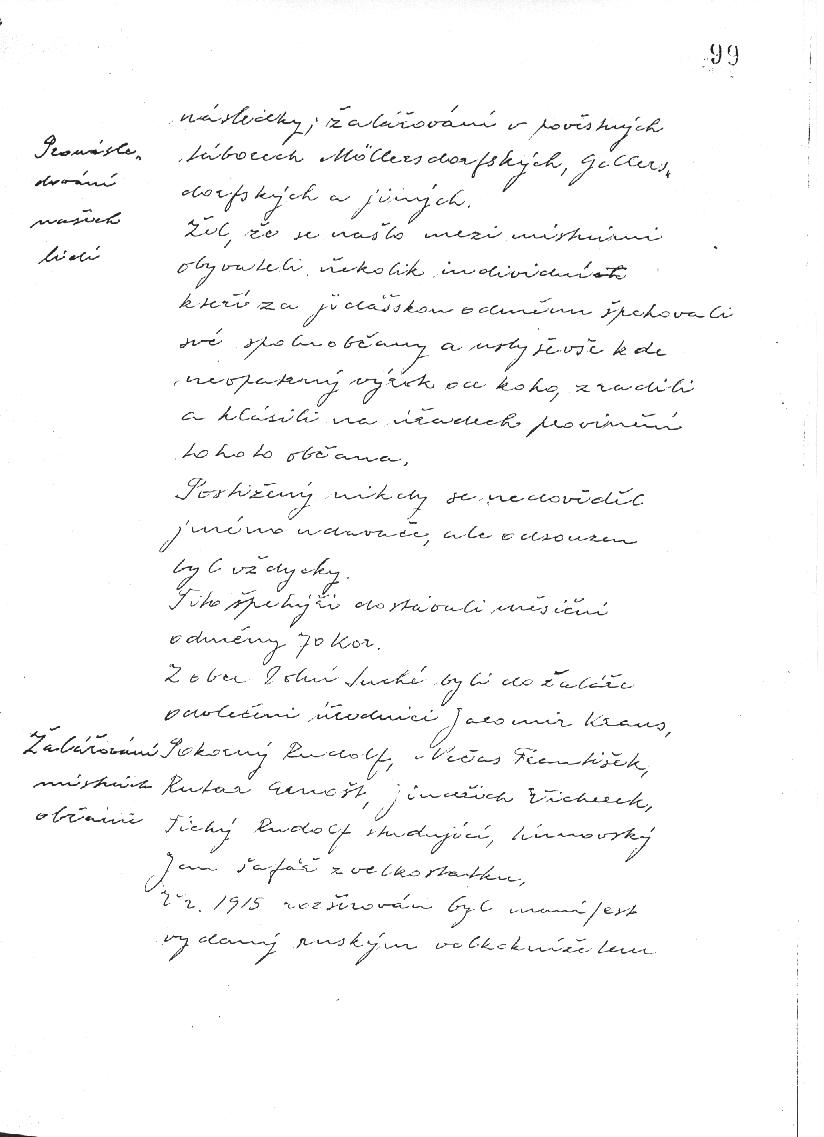 99
následky, žalářování v pověstných
Pronásle-
táborech Möllersdorfských, Gollers-
dování
dorfských a jiných.
našich
Žel, že se našlo mezi místními
lidí
obyvateli několik individuí
kteří za jidášskou odměnu špehovali
své spoluobčany a uslyševše kde
neopatrný výrok od koho, zradili
a hlásili na úřadech provinění
tohoto občana.
Postižený nikdy se nedověděl
jméno udavače, ale odsouzen
byl vždycky.
Tito špehýři dostávali měsíční
odměny 70 Kor.
Z obce Dolní Suché byli do žaláře
odvlečeni úředníci Jaromír Kraus,
Žalářování Pokorný Rudolf, Nečas František,
místních Rutar Arnošt, Jindřich Wicherek,
občanů Tichý Rudolf studující,
Jan šafář z velkostatku.
V r. 1915 rozšiřován byl manifest
vydaný ruským velkoknížetem